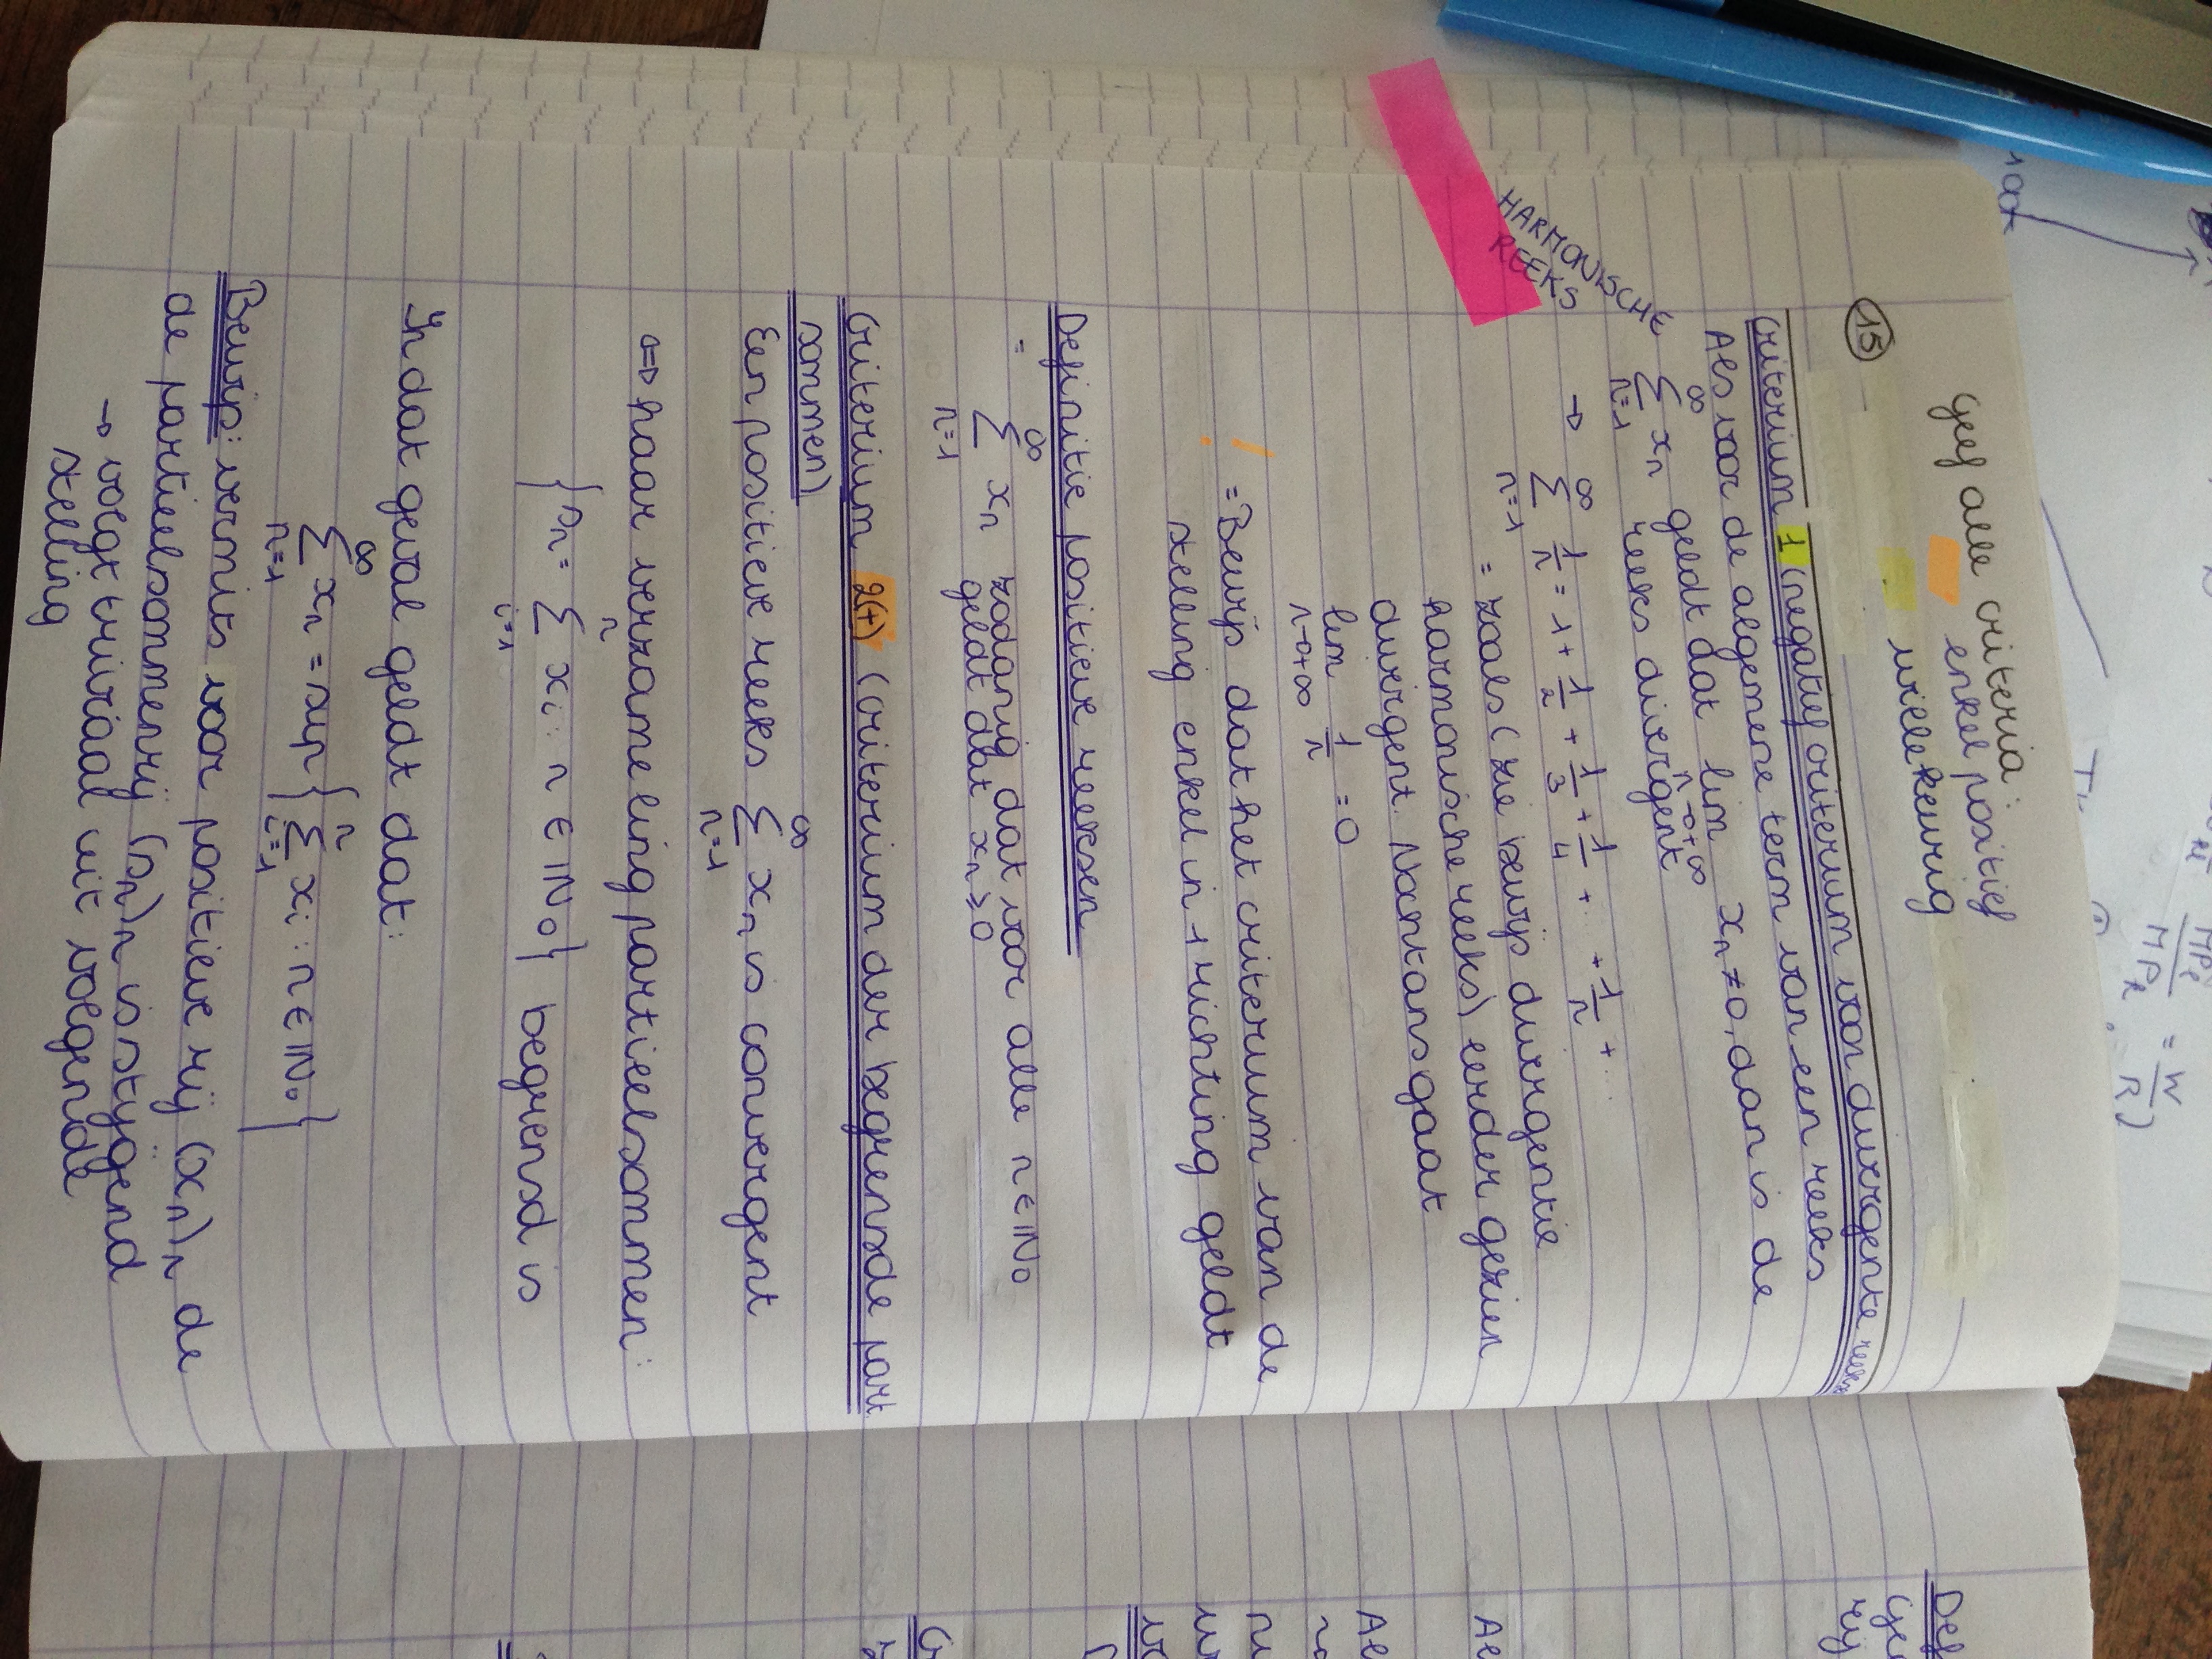 Geef alle criteria:
enkel positief
willekeurig
15
Criterium 1 (negatief criterium voor divergente reeks
Als voor de algemene term van een reeks
∞
Σ xₙ geldt dat lim xₙ ≠ 0, dan is de
n=1 n→+∞
reeks divergent
HARMONISCHE
REEKS
→ ∞
Σ 1/n = 1 + 1/2 + 1/3 + 1/4 + ... + 1/n + ...
n=1
= zoals (zie bewijs divergentie
harmonische reeks) eerder gezien
divergent. Nochtans gaat
lim 1/n = 0
n→+∞
! = Bewijs dat het criterium van de
stelling enkel in 1 richting geldt
Definitie positieve reeksen
= ∞
Σ xₙ zodanig dat voor alle n ∈ ℕ₀
n=1 geldt dat xₙ ≥ 0
Criterium 2(+) (criterium der begrensde part
sommen)
Een positieve reeks ∞ Σ n=1 xₙ is convergent
⇔ haar verzameling partieelsommen:
{sₙ = n Σ i=1 xᵢ : n ∈ ℕ₀} begrensd is
In dat geval geldt dat:
∞ Σ n=1 xₙ = sup { n Σ i=1 xᵢ : n ∈ ℕ₀ }
Bewijs: vermits voor positieve rij (xₙ)ₙ de
de partieelsommenrij (sₙ)ₙ is stijgend
→ volgt triviaal uit volgende
stelling
MPₖ = W
R)
Def
Ge
rij
Al
Al